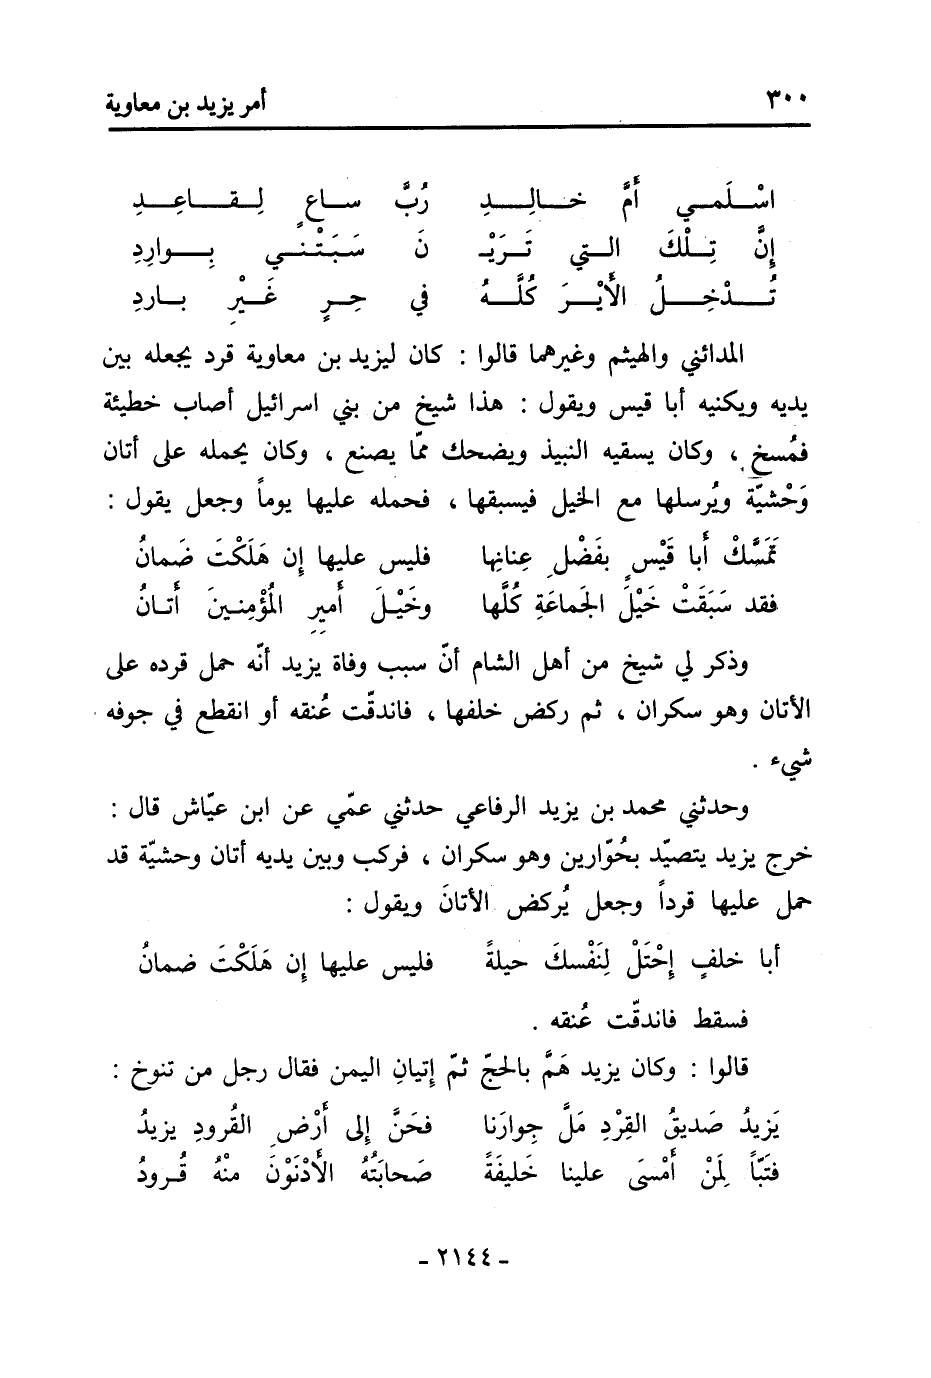 ٣٠٠ أمر يزيد بن معاوية
اسْلَمي أُمَّ خالِدِ رُبَّ ساعٍ لِقاعِدِ
إنَّ تِلْكَ التي تَرَيْـ نَ سَبَتْني بِوارِدِ
تُدْخِلُ الأَيْرَ كُلَّهُ في حِرٍ غَيْرِ بارِدِ
المدائني والهيثم وغيرهما قالوا : كان ليزيد بن معاوية قرد يجعله بين
يديه ويكنيه أبا قيس ويقول : هذا شيخ من بني اسرائيل أصاب خطيئة
فمُسخ ، وكان يسقيه النبيذ ويضحك ممّا يصنع ، وكان يحمله على أتان
وَحْشيّة ويُرسلها مع الخيل فيسبقها ، فحمله عليها يوماً وجعل يقول :
تَمَسَّكْ أَبا قَيْسٍ بفَضْلِ عِنانِها فليس عليها إن هَلَكْتَ ضَمانُ
فقد سَبَقَتْ خَيْلَ الجَماعَةِ كُلَّها وخَيْلَ أَميرِ المُؤْمِنينَ أَتانُ
وذكر لي شيخ من أهل الشام أنّ سبب وفاة يزيد أنّه حمل قرده على
الأتان وهو سكران ، ثم ركض خلفها ، فاندقّت عُنقه أو انقطع في جوفه
شيء .
وحدثني محمد بن يزيد الرفاعي حدثني عمّي عن ابن عيّاش قال :
خرج يزيد يتصيّد بحُوّارين وهو سكران ، فركب وبين يديه أتان وحشيّة قد
حمل عليها قرداً وجعل يُركض الأتانَ ويقول :
أبا خلفٍ إحْتَلْ لِنَفْسكَ حيلةً فليس عليها إن هَلَكْتَ ضمانُ
فسقط فاندقّت عُنقه .
قالوا : وكان يزيد هَمَّ بالحجّ ثمّ إتيانِ اليمن فقال رجل من تنوخ :
يَزيدُ صَديقُ القِرْدِ مَلَّ جِوارَنا فحَنَّ إلى أَرْضِ القُرودِ يزيدُ
فتَبّاً لِمَنْ أَمْسَى علينا خَليفَةً صَحابَتُهُ الأَدْنَوْنَ منْهُ قُرودُ
- ٢١٤٤ -